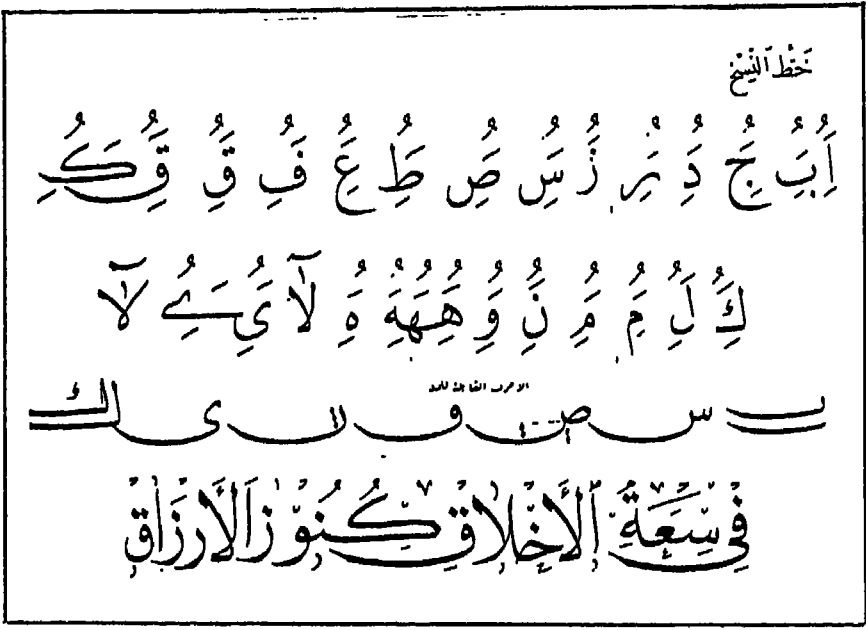 خَطُّ النَّسْخِ
اَُِ بَُِ جَُِ دَُِ رَُِ زَُ سَُِ صَُِ طَُِ عَُِ فَُِ قَُِ قَُِ كَُِ
كَُِ لَُِ مَُِ مَُِ نَُِ وَُِ هَُِهَُِهَُِ هَُِ لآ يَُِ ےَُِ لآ
الاحرف القابلة للمد
ب س ص ف ن ى ك
فِى سِعَةِ الْأَخْلَاقِ كُنُوْزُ الْأَرْزَاقِ